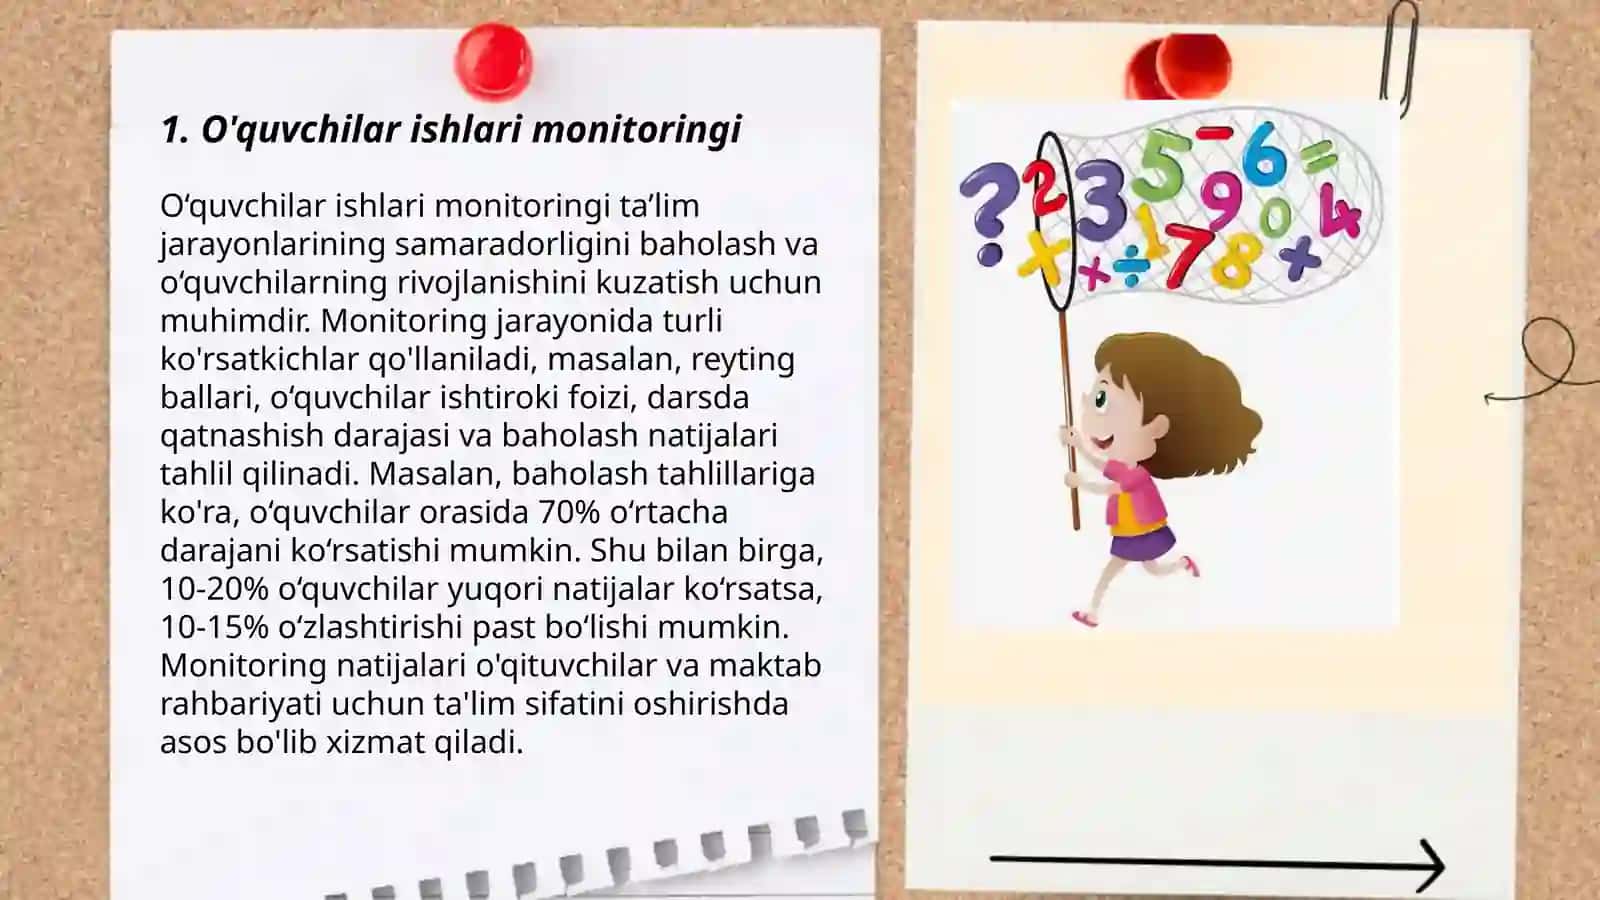 1. O'quvchilar ishlari monitoringi
O‘quvchilar ishlari monitoringi ta’lim
jarayonlarining samaradorligini baholash va
o‘quvchilarning rivojlanishini kuzatish uchun
muhimdir. Monitoring jarayonida turli
ko'rsatkichlar qo'llaniladi, masalan, reyting
ballari, o‘quvchilar ishtiroki foizi, darsda
qatnashish darajasi va baholash natijalari
tahlil qilinadi. Masalan, baholash tahlillariga
ko'ra, o‘quvchilar orasida 70% o‘rtacha
darajani ko‘rsatishi mumkin. Shu bilan birga,
10-20% o‘quvchilar yuqori natijalar ko‘rsatsa,
10-15% o‘zlashtirishi past bo‘lishi mumkin.
Monitoring natijalari o'qituvchilar va maktab
rahbariyati uchun ta'lim sifatini oshirishda
asos bo'lib xizmat qiladi.
? 2 3 5 - 6 = 9 0 4
x × ÷ 1 7 8 x